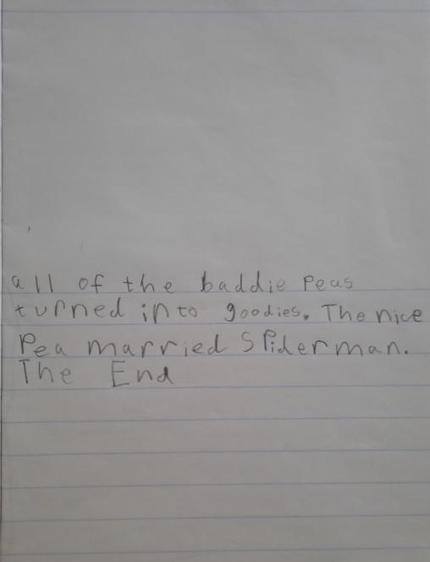 all of the baddie peas
turned into goodies. The nice
Pea married Spiderman.
The End